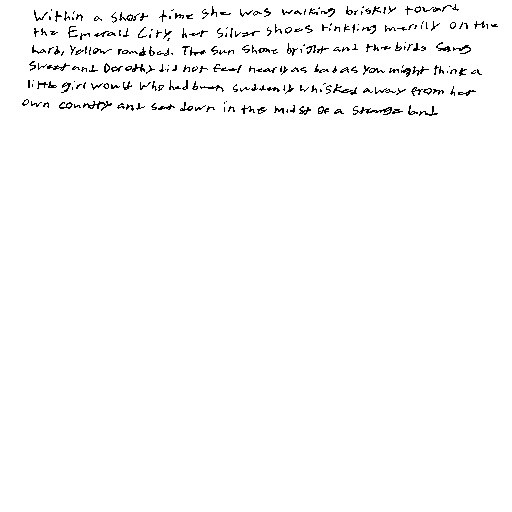 Within a short time she was walking briskly toward
the Emerald City, her Silver Shoes tinkling merrily on the
hard, yellow roadbed. The sun shone bright and the birds sang
sweet and Dorothy did not feel nearly as bad as you might think a
little girl would who had been suddenly whisked away from her
own country and set down in the midst of a strange land